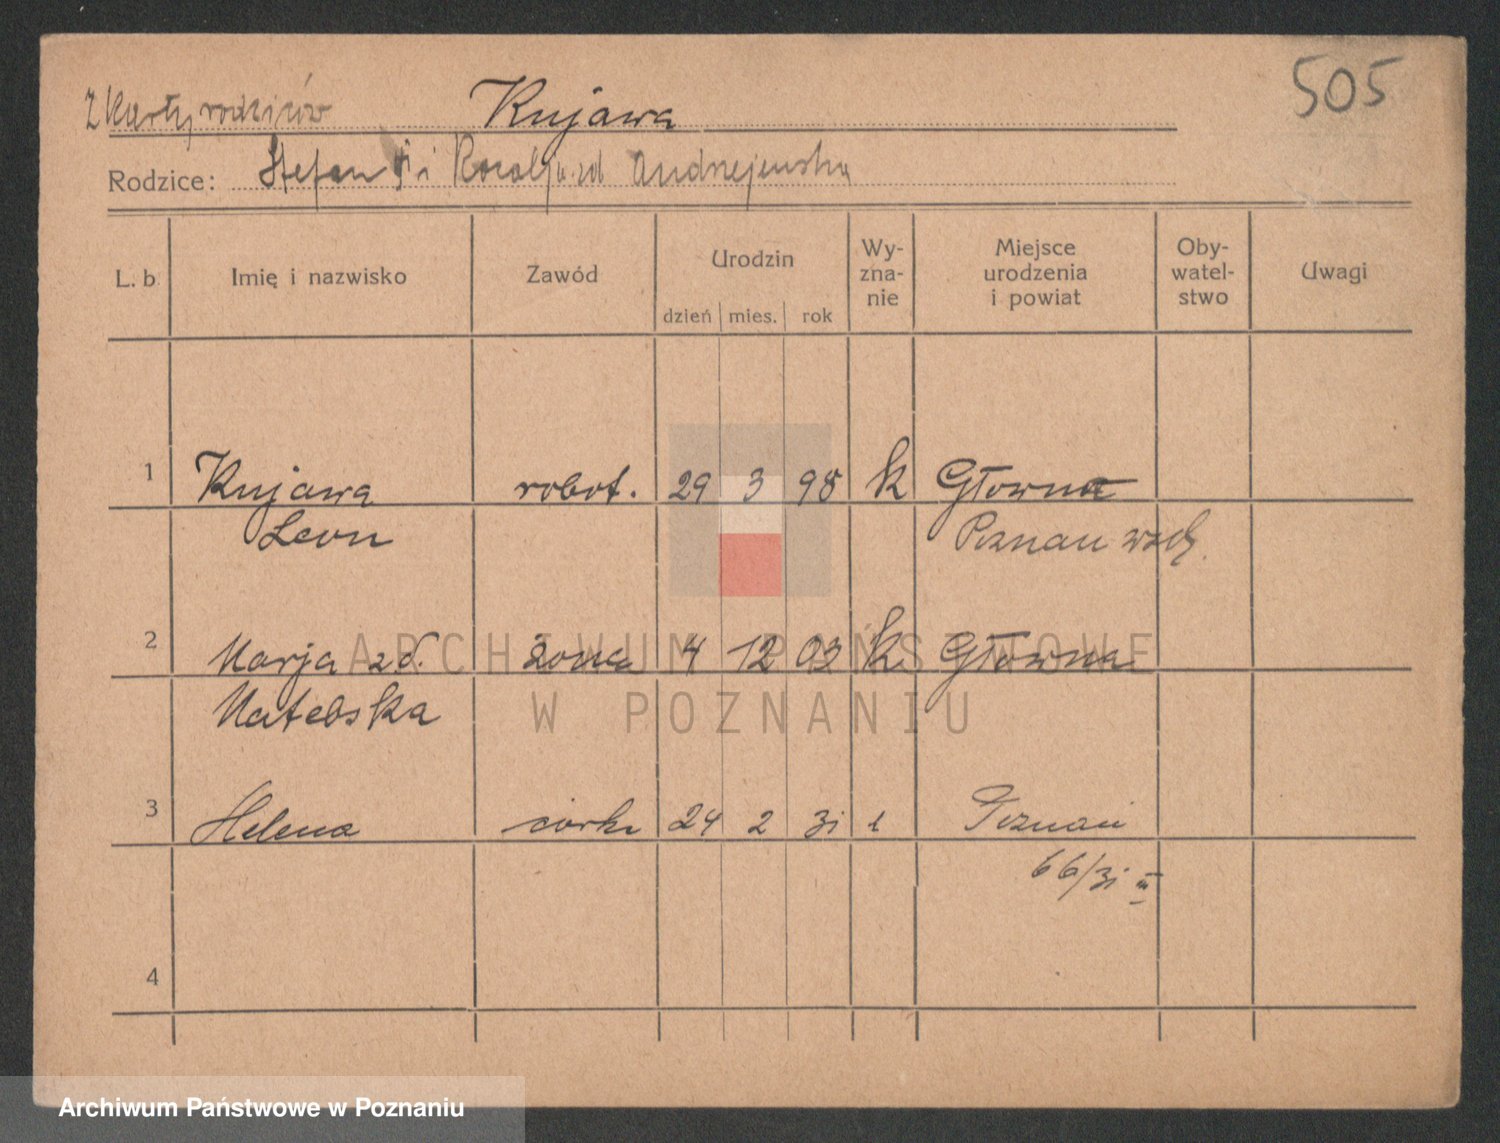 505
Z karty rodziców Kujawa
Rodzice: Stefan i Rozalja zd Andrzejewska
L. b. Imię i nazwisko Zawód Urodzin dzień mies. rok Wy-zna-nie Miejsce urodzenia i powiat Oby-watel-stwo Uwagi
1 Kujawa robot. 29 3 98 k Głowna
Leon Poznań wsch.
2 Marja zd. żona 4 12 03 k. Głowna
Matebska
3 Helena córka 24 2 31 Poznań
66/31 III
4
ARCHIWUM PAŃSTWOWE
W POZNANIU
Archiwum Państwowe w Poznaniu